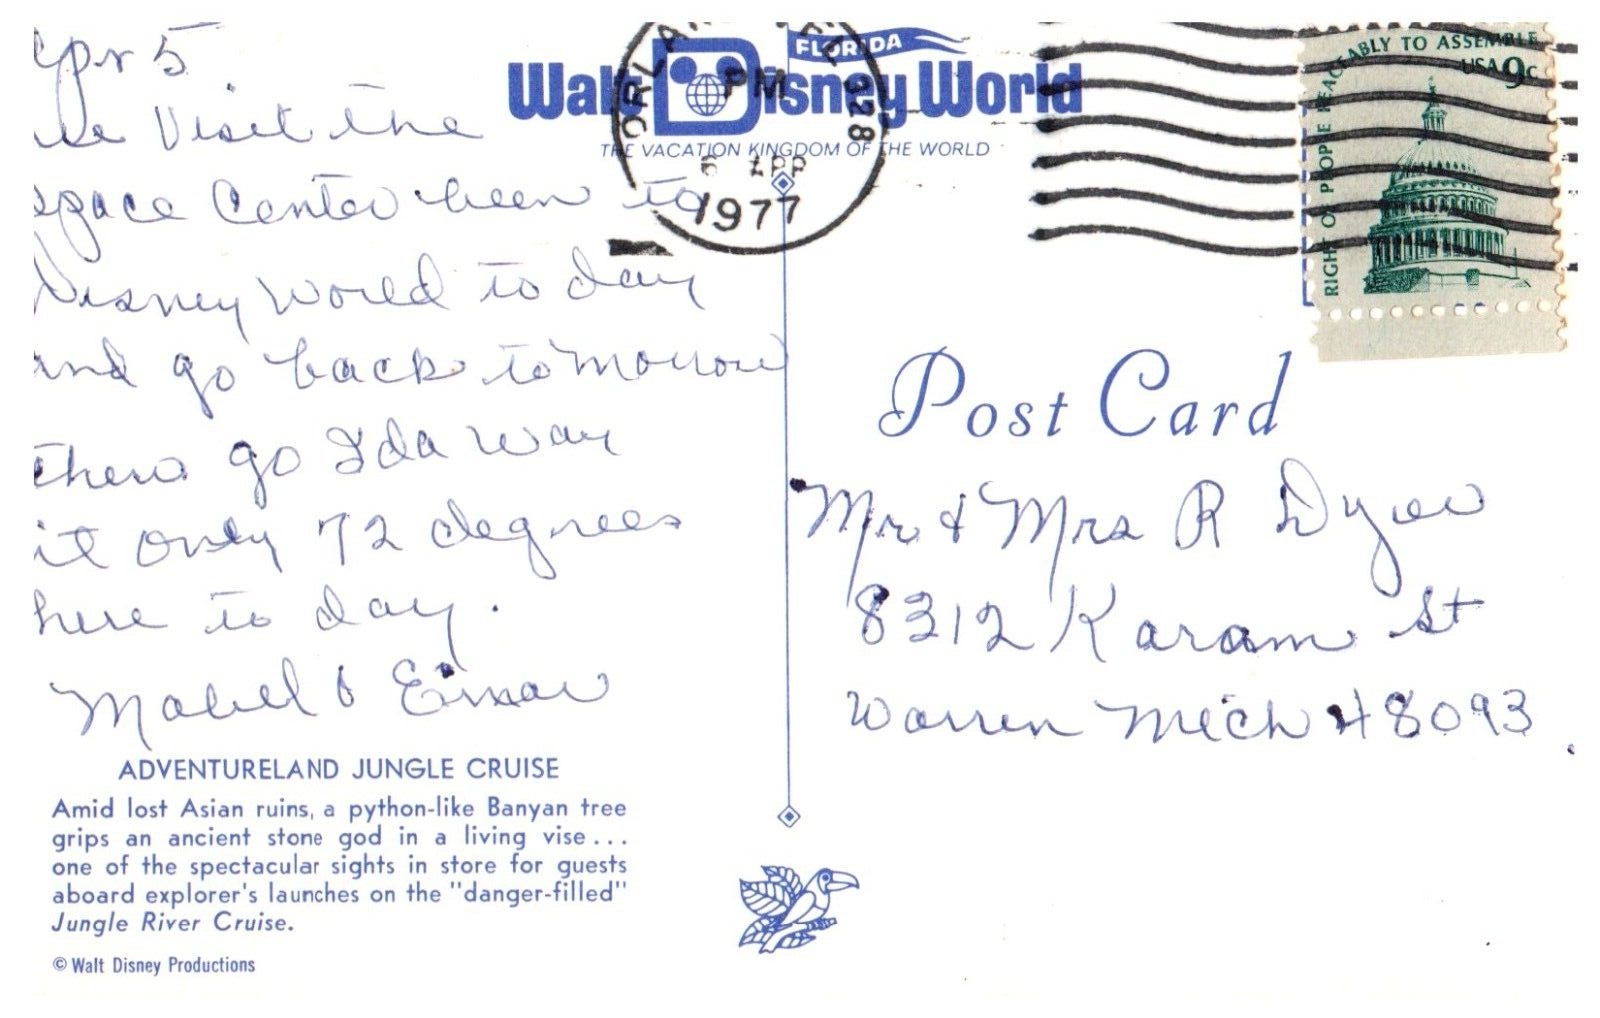 Apr 5
we Visit the
space Center been to
Disney World to day
and go back tomorrow
then go Ida way
it only 72 degrees
here to day.
Mabel & Einar
ADVENTURELAND JUNGLE CRUISE
Amid lost Asian ruins, a python-like Banyan tree
grips an ancient stone god in a living vise...
one of the spectacular sights in store for guests
aboard explorer's launches on the "danger-filled"
Jungle River Cruise.
© Walt Disney Productions
FLORIDA
Walt Disney World
THE VACATION KINGDOM OF THE WORLD
ORLANDO, FL 328
PM
6 APR
1977
RIGHT OF PEOPLE PEACEABLY TO ASSEMBLE
USA 9c
Post Card
Mr & Mrs R Dyer
8312 Karam St
Warren Mich 48093